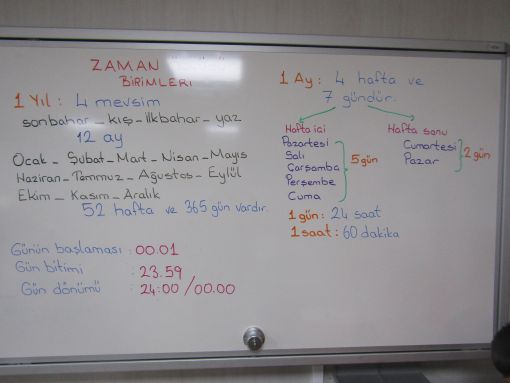 ZAMAN
BİRİMLERİ
1 Yıl : 4 mevsim
sonbahar _ kış _ ilkbahar _ yaz
12 ay
Ocak _ Şubat _ Mart _ Nisan _ Mayıs
Haziran _ Temmuz _ Ağustos _ Eylül
Ekim _ Kasım _ Aralık
52 hafta ve 365 gün vardır.
Günün başlaması : 00.01
Gün bitimi : 23.59
Gün dönümü : 24:00 / 00.00
1 Ay : 4 hafta ve
7 gündür.
Hafta içi
Pazartesi
Salı
Çarşamba
Perşembe
Cuma
5 gün
Hafta sonu
Cumartesi
Pazar
2 gün
1 gün : 24 saat
1 saat : 60 dakika